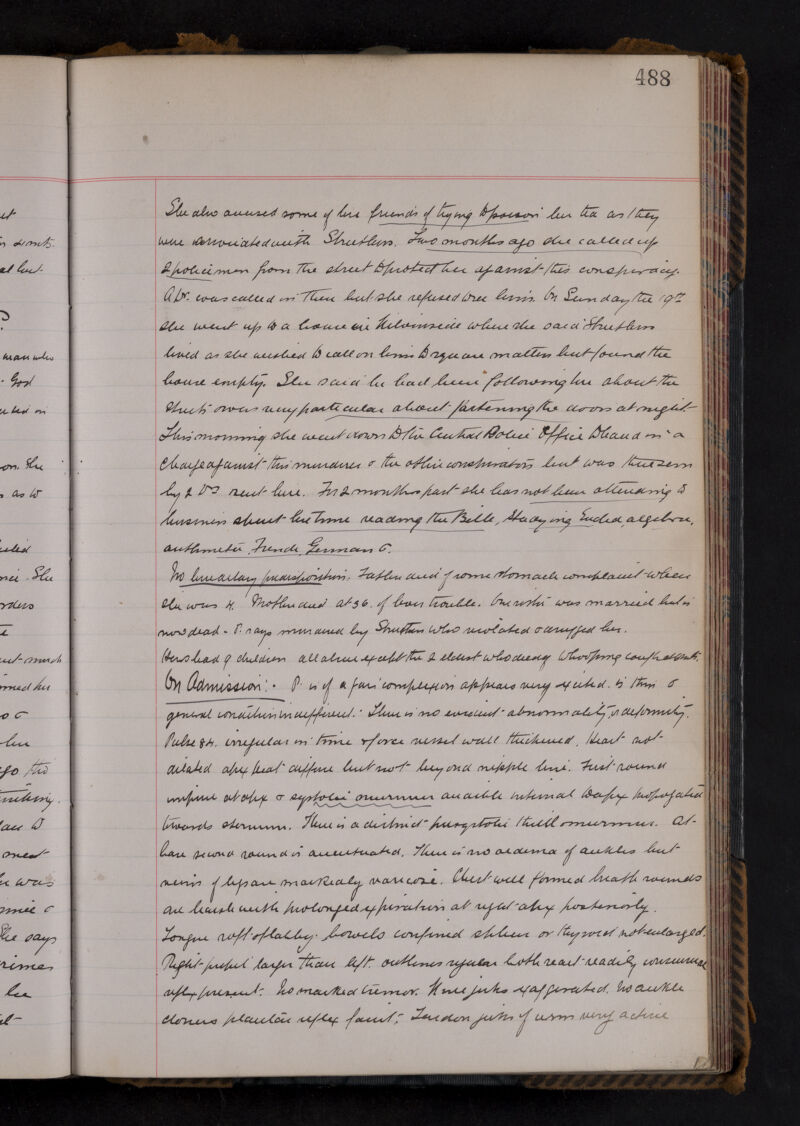 488
She also accused some of her friends of trying to poison her tea as they
were associated with Struthers. Two months ago she called up
2 policemen from the street to protect her against this conspiracy.
A Dr. was called in then but she refused to see him. On Sunday the 19th
she went up to a house in Kelvinside where she said Struthers
lived as she wished to call on him to square matters but found the
house empty. She said he had been following her about the
streets & was very particular about fastening the doors at night.
This morning she went down to the Central Police Office to hand in a
charge against this murderer & the other conspirators but was then seen
by 2 Drs sent here. For 2 months past she has not been attending to
business spent her time reading the Bible, studying Euclid, algebra,
arithmetic, French, German &.
No hereditary predisposition. Father died of some stomach complaint when
she was 4. Mother died at 36. of liver trouble. One sister was married but is
now dead - P. says murdered by Struthers who violated & drugged her.
Has had 9 children all alive except the 2 eldest who died of whooping cough
On Admission:- P. is of a fair complexion appears very excited. is thin &
general condition indifferent. There is no evident abnormality or deformity.
Pulse 84. irregular in time & force vessel wall thickened. Heart not
dilated apex beat diffuse but not beyond nipple line. First sound
impure at apex & systolic murmur audible internal to apex propagated
towards sternum. There is a distinct presystolic thrill & murmur. At
base second sound is accentuated. There is no oedema of ankles but
veins of legs are markedly varicose. Chest well formed breath sounds
are harsh with prolonged expiration at right apex posteriorly.
Tongue soft & flabby. bowels confined spleen or thyroid not enlarged.
Right pupil larger than left. outlines regular both react readily consensual
reflex present. No marked tremor. Knee jerks exaggerated. No ankle
clonus plantar reflex faint. Tendon jerks of arms very active